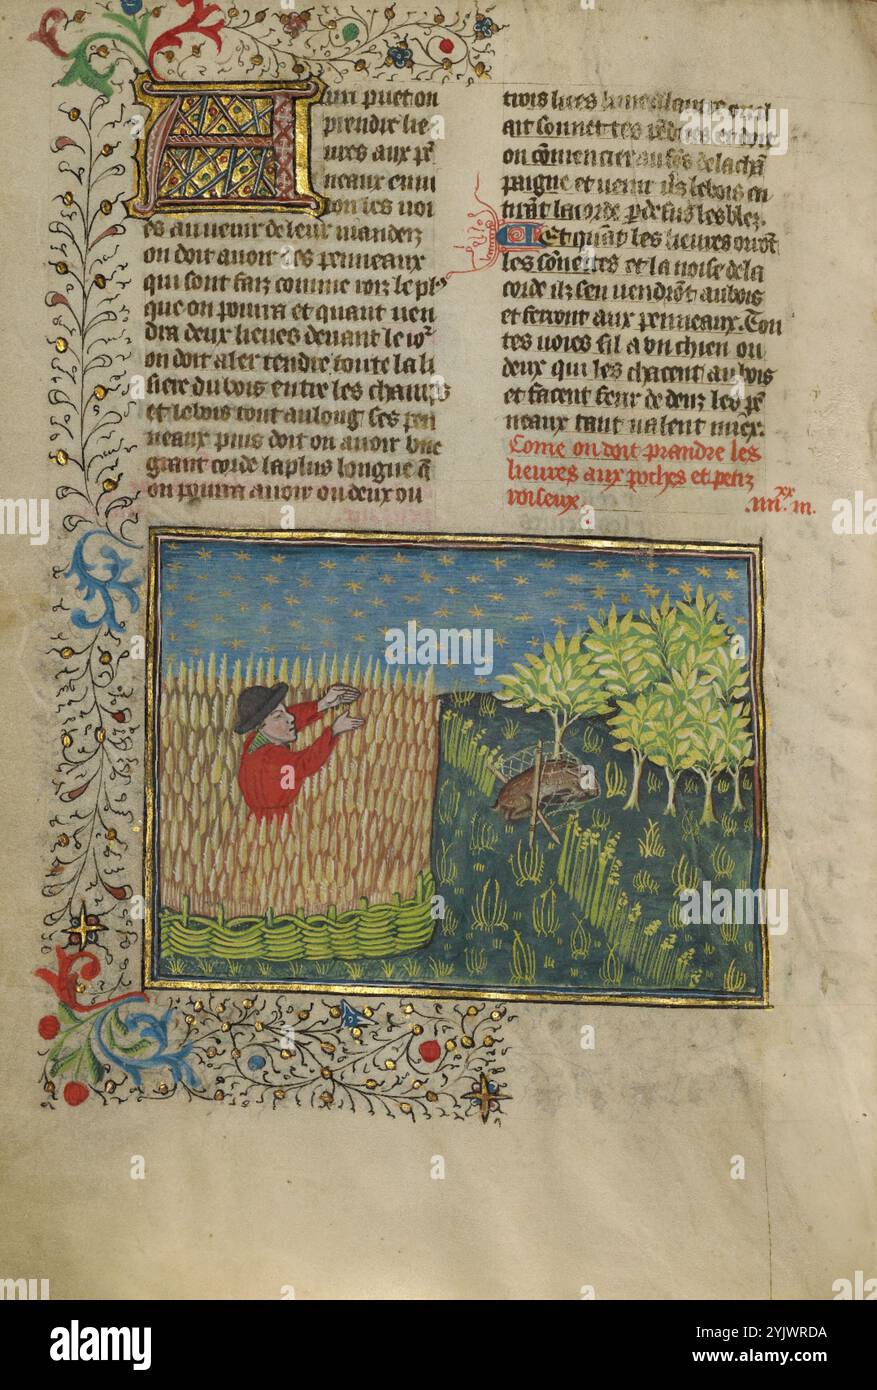 Aussi puet on
prendre lie
ures aux pē
neaux en mi
ses au uenir de leur mander
on doit auoir des penneaux
qui sont faiz comme roiz le plꝰ
que on pourra et quant uen
dra deux lieues deuant le ioꝛ
on doit aler tendre toute la li
siere du bois entre les champs
et le bois tout au long ses pen
neaux puis doit on auoir une
grant corde la plus longue q̄
on pourra auoir ou deux ou
air sonnettes pendues et doit
on cōmencier au fōs de la chā
paigne et uenir uers le bois en
tirāt la corde par dessus les blez.
Et quāt les lieures orrōt
les sōnettes et la noise de la
corde ilz sen uendrōt au bois
et ferront aux penneaux. Tou
tes uoies sil a un chien ou
deux qui les chacent au bois
et facent ferir dedenz les pē
neaux tant ualent miex.
Come on doit prandre les
lieures aux poches et petiz
roiseux.
alamy
Image ID: 2YJWRDA
www.alamy.com